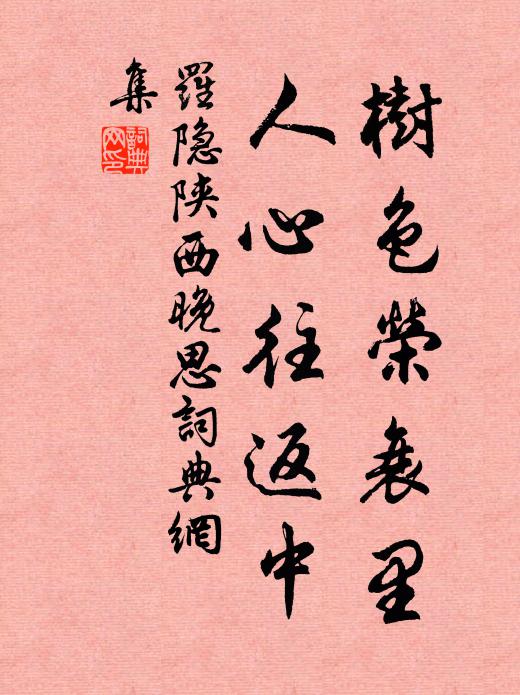 樹色榮衰里
人心往返中
羅隐陕西晚思詞典網
集
詞典網印